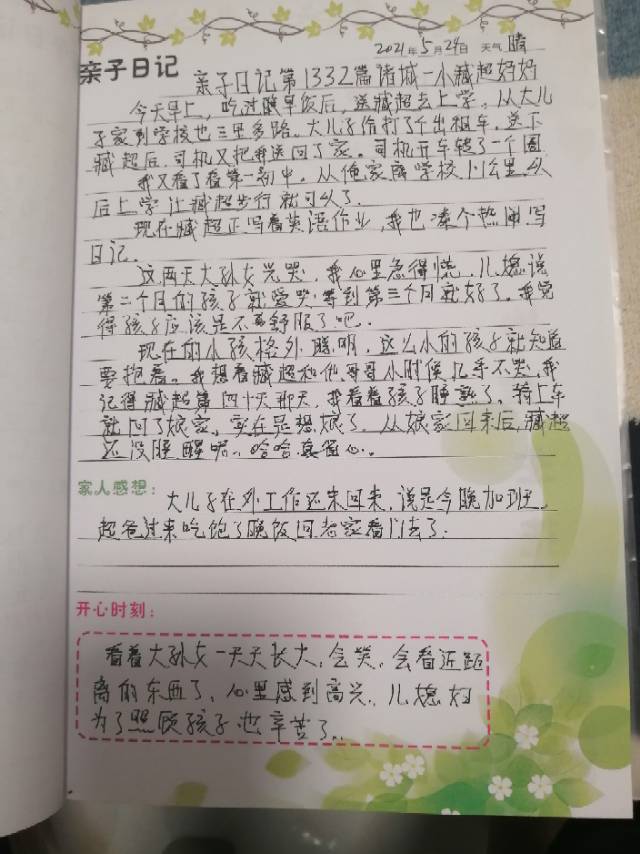 2021年5月24日 天气 晴
亲子日记
亲子日记第1332篇诸城一小臧超妈妈
今天早上，吃过晚早饭后，送臧超去上学。从大儿
子家到学校也三里多路。大儿子给打了个出租车。送下
臧超后，司机又把我送回了家。司机开车转了一个圈
我又看了看第一初中。从俺家离学校八公里从
后上学让臧超步行就可以了.
现在臧超正写着英语作业，我也凑个热闹写
日记.
这两天大孙女光哭，我心里急得慌。儿媳说
第二个月的孩子就爱哭.等到第三个月就好了。我觉
得孩子应该是不舒服了吧.
现在的小孩格外聪明，这么小的孩子就知道
要抱着。我想着臧超和他哥哥小时候几乎不哭.我
记得臧超第四十天那天，我看着孩子睡熟了.骑上车
就回了娘家.实在是想娘了.从娘家回来后,臧超
还没睡醒呢.哈哈真省心..
家人感想：
大儿子在外工作还未回来，说是今晚加班.
超爸过来吃饱了晚饭回老家看门去了.
开心时刻：
看着大孙女一天天长大,会笑.会看近距
离的东西了，心里感到高兴.儿媳妇
为了照顾孩子也辛苦了..